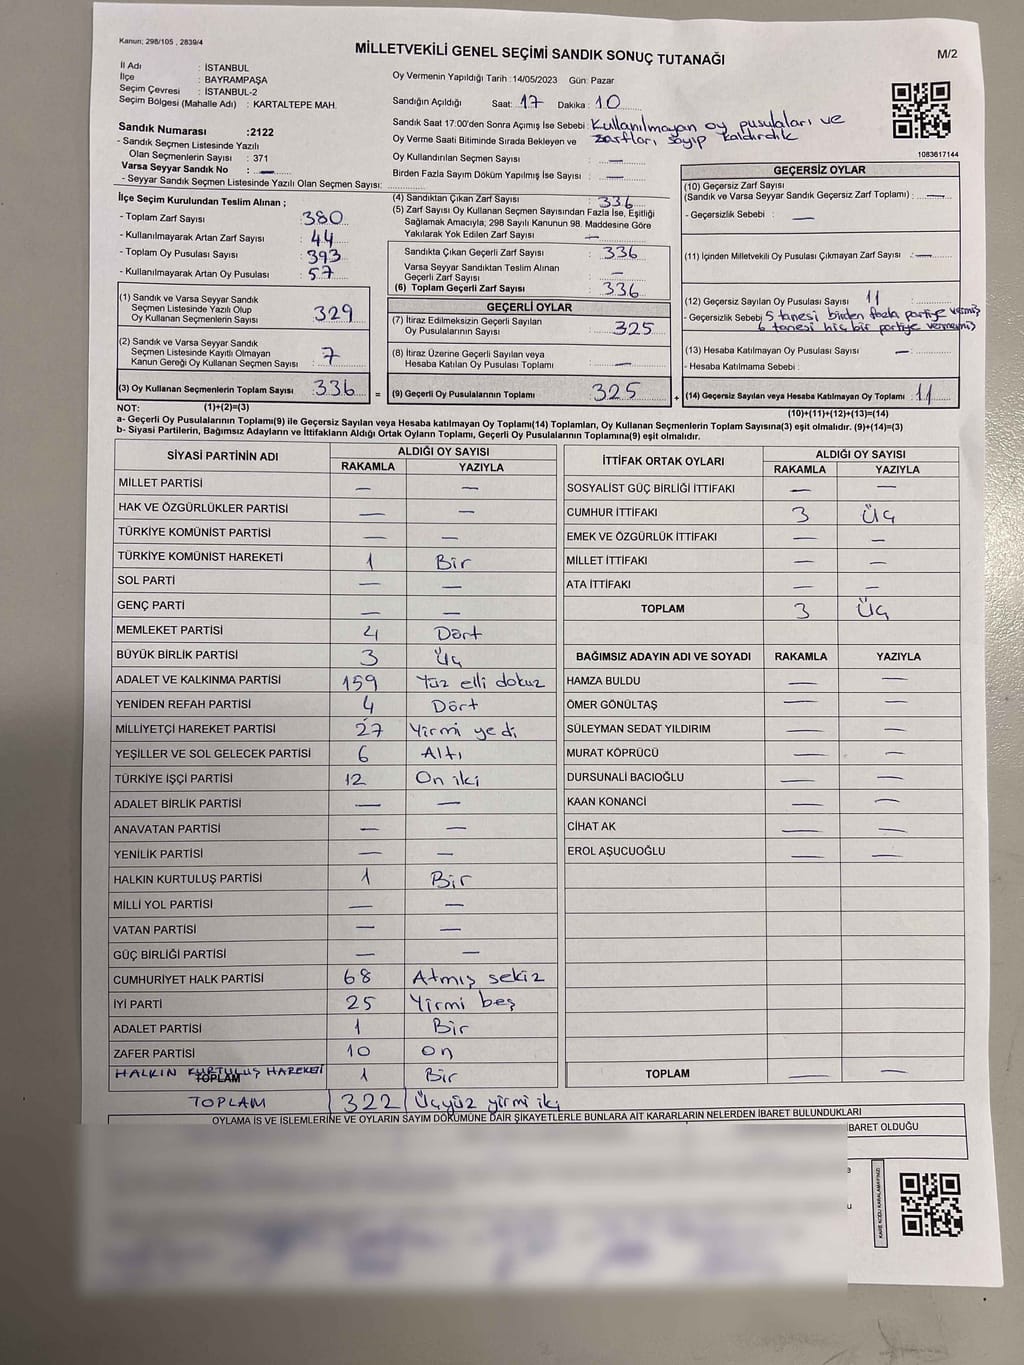 Kanun; 298/105 , 2839/4
MİLLETVEKİLİ GENEL SEÇİMİ SANDIK SONUÇ TUTANAĞI
M/2
İl Adı : İSTANBUL
İlçe : BAYRAMPAŞA
Seçim Çevresi : İSTANBUL-2
Seçim Bölgesi (Mahalle Adı) : KARTALTEPE MAH.
Oy Vermenin Yapıldığı Tarih :14/05/2023 Gün: Pazar
Sandığın Açıldığı Saat: 17 Dakika : 10
Sandık Saat 17:00'den Sonra Açımış İse Sebebi : Kullanılmayan oy pusulaları ve
Oy Verme Saati Bitiminde Sırada Bekleyen ve zarfları sayıp kaldırdık
Oy Kullandırılan Seçmen Sayısı : —
Birden Fazla Sayım Döküm Yapılmış İse Sayısı : —
1083617144
Sandık Numarası :2122
- Sandık Seçmen Listesinde Yazılı
Olan Seçmenlerin Sayısı : 371
Varsa Seyyar Sandık No : —
- Seyyar Sandık Seçmen Listesinde Yazılı Olan Seçmen Sayısı:
İlçe Seçim Kurulundan Teslim Alınan ;
- Toplam Zarf Sayısı 380
- Kullanılmayarak Artan Zarf Sayısı 44
- Toplam Oy Pusulası Sayısı 393
- Kullanılmayarak Artan Oy Pusulası 57
(1) Sandık ve Varsa Seyyar Sandık
Seçmen Listesinde Yazılı Olup
Oy Kullanan Seçmenlerin Sayısı 329
(2) Sandık ve Varsa Seyyar Sandık
Seçmen Listesinde Kayıtlı Olmayan
Kanun Gereği Oy Kullanan Seçmen Sayısı 7
(3) Oy Kullanan Seçmenlerin Toplam Sayısı 336 =
(4) Sandıktan Çıkan Zarf Sayısı : 336
(5) Zarf Sayısı Oy Kullanan Seçmen Sayısından Fazla İse, Eşitliği
Sağlamak Amacıyla; 298 Sayılı Kanunun 98. Maddesine Göre
Yakılarak Yok Edilen Zarf Sayısı : —
Sandıkta Çıkan Geçerli Zarf Sayısı : 336
Varsa Seyyar Sandıktan Teslim Alınan
Geçerli Zarf Sayısı : —
(6) Toplam Geçerli Zarf Sayısı : 336
GEÇERLİ OYLAR
(7) İtiraz Edilmeksizin Geçerli Sayılan
Oy Pusulalarının Sayısı : 325
(8) İtiraz Üzerine Geçerli Sayılan veya
Hesaba Katılan Oy Pusulası Toplamı : —
(9) Geçerli Oy Pusulalarının Toplamı : 325 +
GEÇERSİZ OYLAR
(10) Geçersiz Zarf Sayısı
(Sandık ve Varsa Seyyar Sandık Geçersiz Zarf Toplamı) : —
- Geçersizlik Sebebi : —
(11) İçinden Milletvekili Oy Pusulası Çıkmayan Zarf Sayısı : —
(12) Geçersiz Sayılan Oy Pusulası Sayısı 11
- Geçersizlik Sebebi 5 tanesi birden fazla partiye vermiş
6 tanesi hiç bir partiye vermemiş
(13) Hesaba Katılmayan Oy Pusulası Sayısı : —
- Hesaba Katılmama Sebebi :
(14) Geçersiz Sayılan veya Hesaba Katılmayan Oy Toplamı : 11
NOT: (1)+(2)=(3)
(10)+(11)+(12)+(13)=(14)
a- Geçerli Oy Pusulalarının Toplamı(9) ile Geçersiz Sayılan veya Hesaba katılmayan Oy Toplamı(14) Toplamları, Oy Kullanan Seçmenlerin Toplam Sayısına(3) eşit olmalıdır. (9)+(14)=(3)
b- Siyasi Partilerin, Bağımsız Adayların ve İttifakların Aldığı Ortak Oyların Toplamı, Geçerli Oy Pusulalarının Toplamına(9) eşit olmalıdır.
SİYASİ PARTİNİN ADI ALDIĞI OY SAYISI
RAKAMLA YAZIYLA
MİLLET PARTİSİ — —
HAK VE ÖZGÜRLÜKLER PARTİSİ — —
TÜRKİYE KOMÜNİST PARTİSİ — —
TÜRKİYE KOMÜNİST HAREKETİ 1 Bir
SOL PARTİ — —
GENÇ PARTİ — —
MEMLEKET PARTİSİ 4 Dört
BÜYÜK BİRLİK PARTİSİ 3 Üç
ADALET VE KALKINMA PARTİSİ 159 Yüz elli dokuz
YENİDEN REFAH PARTİSİ 4 Dört
MİLLİYETÇİ HAREKET PARTİSİ 27 Yirmi yedi
YEŞİLLER VE SOL GELECEK PARTİSİ 6 Altı
TÜRKİYE İŞÇİ PARTİSİ 12 On iki
ADALET BİRLİK PARTİSİ — —
ANAVATAN PARTİSİ — —
YENİLİK PARTİSİ — —
HALKIN KURTULUŞ PARTİSİ 1 Bir
MİLLİ YOL PARTİSİ — —
VATAN PARTİSİ — —
GÜÇ BİRLİĞİ PARTİSİ — —
CUMHURİYET HALK PARTİSİ 68 Atmış sekiz
İYİ PARTİ 25 Yirmi beş
ADALET PARTİSİ 1 Bir
ZAFER PARTİSİ 10 on
HALKIN KURTULUŞ HAREKETİ 1 Bir
TOPLAM
TOPLAM 322 Üçyüz yirmi iki
İTTİFAK ORTAK OYLARI ALDIĞI OY SAYISI
RAKAMLA YAZIYLA
SOSYALİST GÜÇ BİRLİĞİ İTTİFAKI — —
CUMHUR İTTİFAKI 3 Üç
EMEK VE ÖZGÜRLÜK İTTİFAKI — —
MİLLET İTTİFAKI — —
ATA İTTİFAKI — —
TOPLAM 3 Üç
BAĞIMSIZ ADAYIN ADI VE SOYADI RAKAMLA YAZIYLA
HAMZA BULDU — —
ÖMER GÖNÜLTAŞ — —
SÜLEYMAN SEDAT YILDIRIM — —
MURAT KÖPRÜCÜ — —
DURSUNALİ BACIOĞLU — —
KAAN KONANCİ — —
CİHAT AK — —
EROL AŞUCUOĞLU — —
TOPLAM — —
OYLAMA İŞ VE İŞLEMLERİNE VE OYLARIN SAYIM DÖKÜMÜNE DAİR ŞİKAYETLERLE BUNLARA AİT KARARLARIN NELERDEN İBARET BULUNDUKLARI
İBARET OLDUĞU
KARE KODU KARALAMAYINIZ!